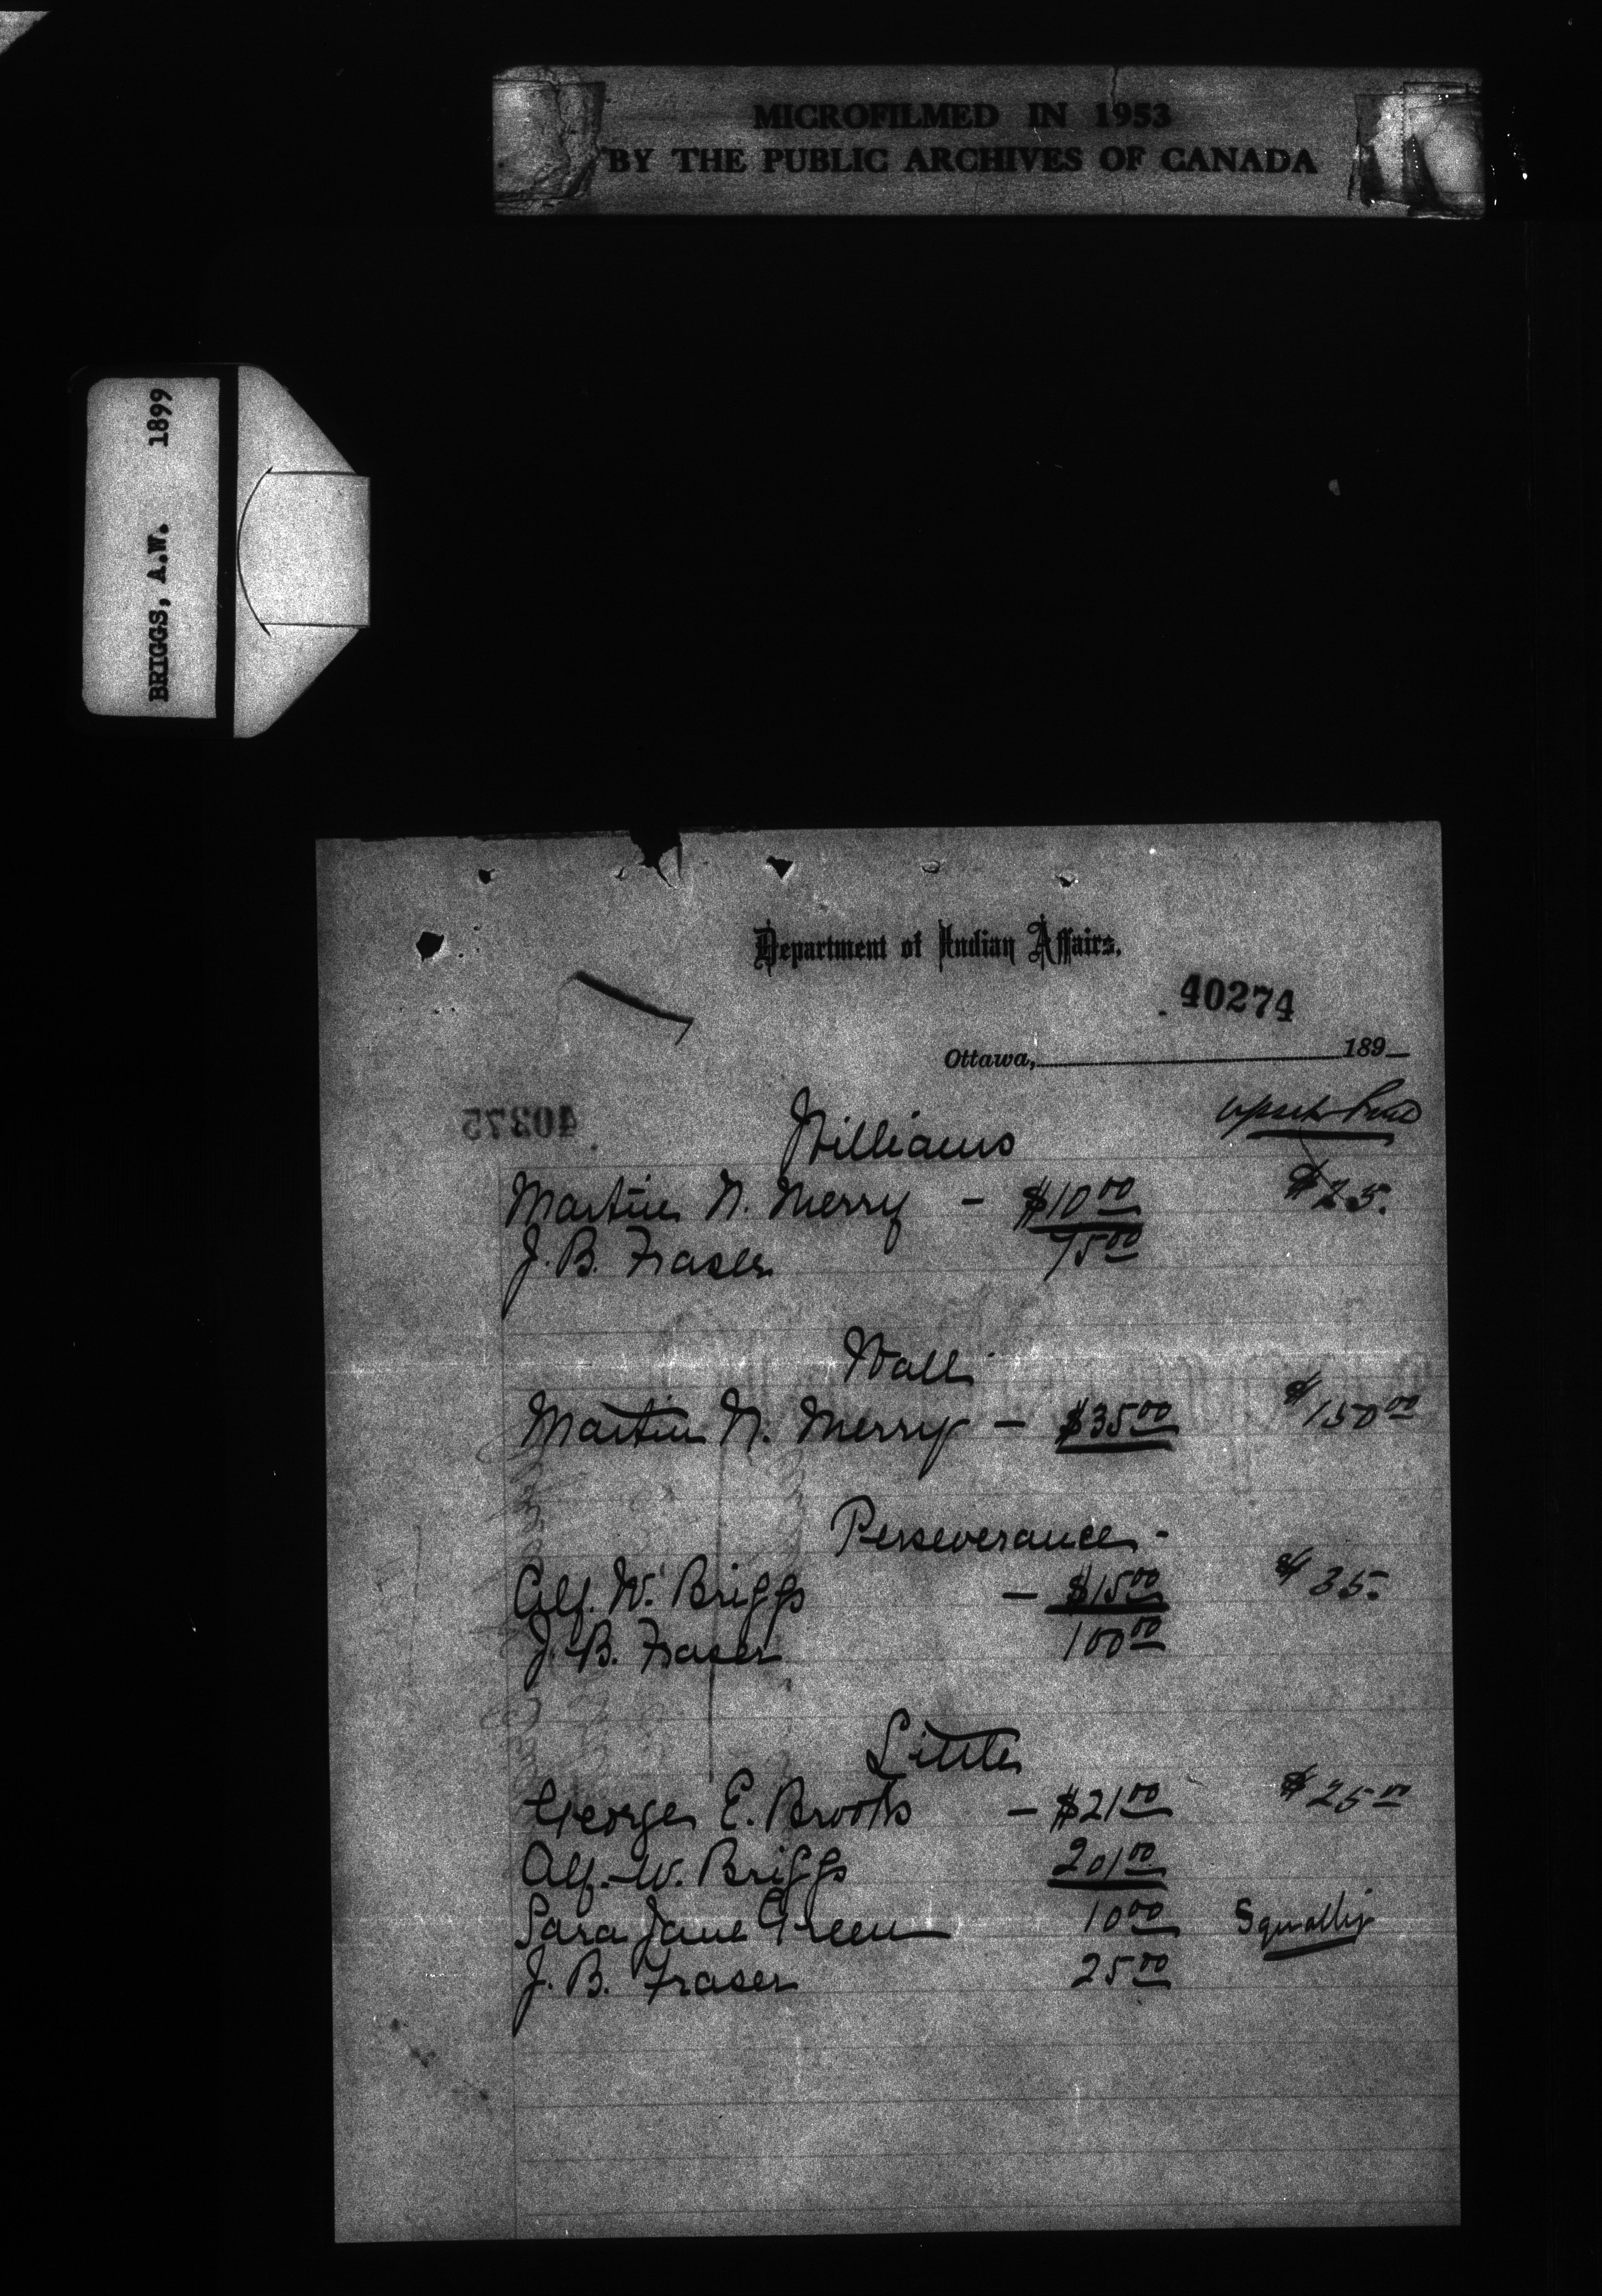 MICROFILMED IN 1953
BY THE PUBLIC ARCHIVES OF CANADA
BRIGGS, A.W. 1899
Department of Indian Affairs.
40274
Ottawa, 189
40375
Upset Price
Williams
Martin N. Merry - $10.00 $25.
J.B. Fraser 75.00
Wall
Martin N. Merry - $35.00 $150.00
Perseverance -
Alf. W. Briggs - $15.00 $35.
J.B. Fraser 100.00
Little
George E. Brooks - $21.00 $25.00
Alf. W. Briggs 201.00
Sara Jane Green 10.00
J.B. Fraser 25.00